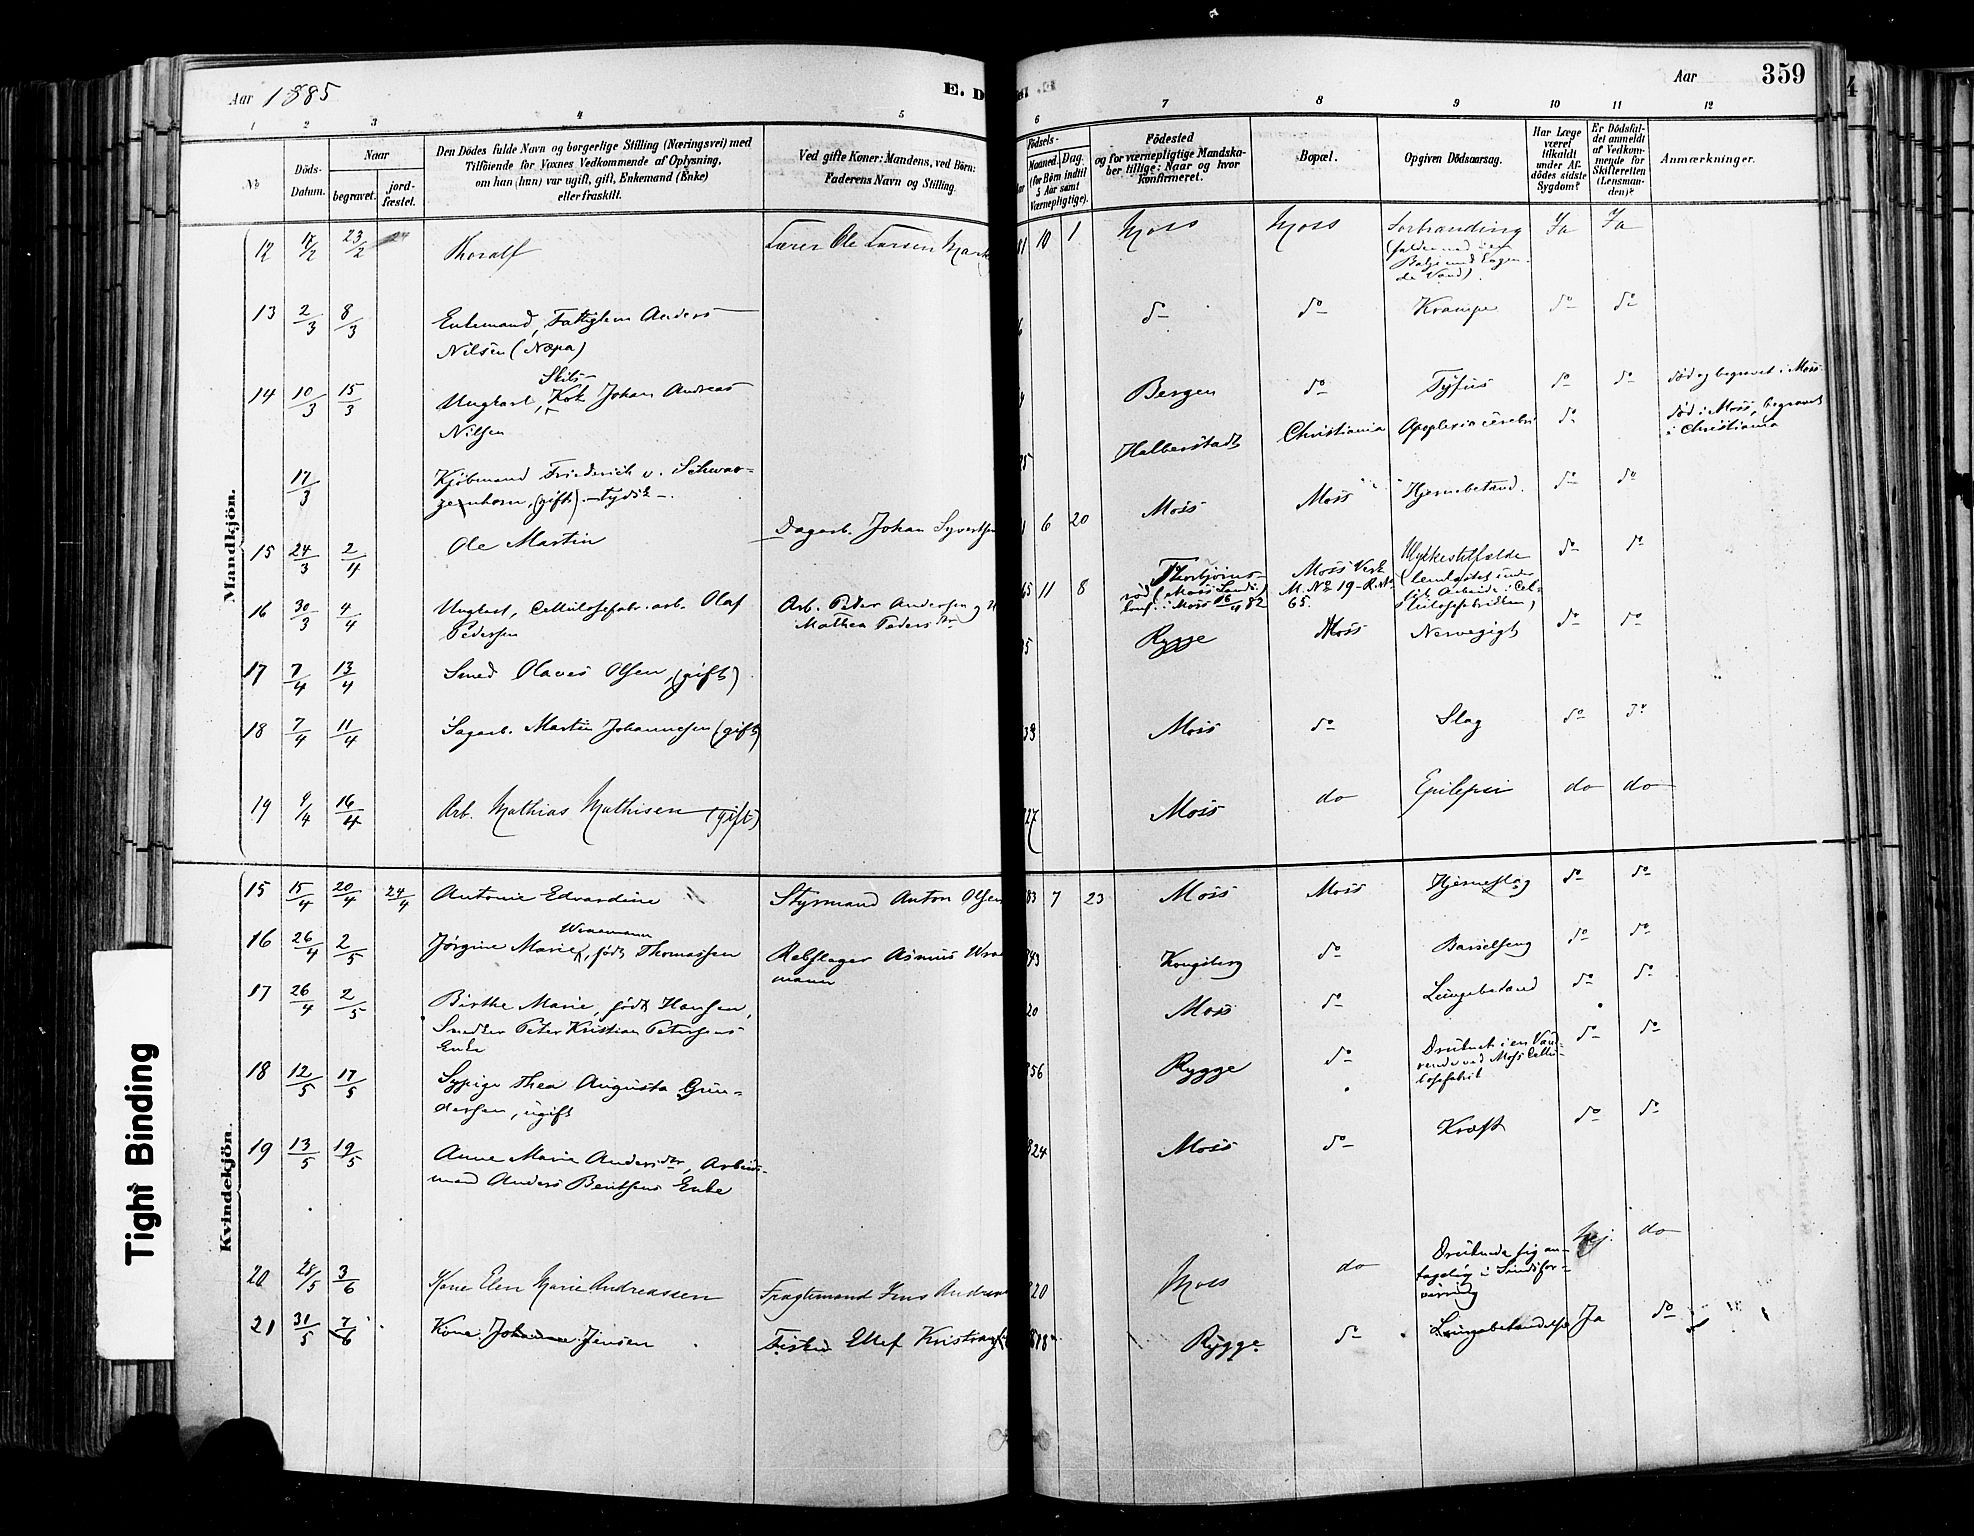 Aar 1885
E. D
Aar
359
1 2 3 4 5 6 7 8 9 10 11 12
No
Døds-Datum.
Naar
begravet.
jord-fæstet.
Den Dødes fulde Navn og borgerlige Stilling (Næringsvei) med
Tilføiende for Voxnes Vedkommende af Oplysning,
om han (hun) var ugift, gift, Enkemand (Enke)
eller fraskilt.
Ved gifte Koner: Mandens, ved Børn:
Faderens Navn og Stilling.
Fødsels-
Maaned. Dag.
(for Børn indtil
5 Aar samt
Værnepligtige).
Fødested
og for værnepligtige Mandska-
ber tillige: Naar og hvor
konfirmeret.
Bopæl.
Opgiven Dødsaarsag.
Har Læge
været
tilkaldt
under Af-
dødes sidste
Sygdom?
Er Dødsfal-
det anmeldt
af Vedkom-
mende for
Skifteretten
(Lensman-
den)?
Anmærkninger.
Mandkjön.
12 23/2 Thoralf Lærer Ole Larsen 81 10 1 Moss Moss Forbrænding Ja Ja
13 2/3 8/3 Enkemand, Fattiglem Anders
Nilsen (Næpa) do do Krampe do do
14 10/3 15/3 Ungkarl, Skibs-Kok Johan Andreas
Nilsen Bergen do Tyfus do do død og begravet i Moss
17/3 Kjøbmand Friederich v. Schwar-
zenhorn, (gift). - tydsk -. Halberstadt Christiania Apoplexia cerebri do død i Moss, begravet
i Christiania
15 24/3 2/4 Ole Martin Dagarb. Johan Syvertsen 6 20 Moss Moss Hjernebetænd. do do
16 30/3 4/4 Ungkarl, Cellulosefabr. arb. Olaf
Pedersen Arb. Peder Andersen og
Mathea Pedersdtr 65 11 8 Thorbjørns-
rød (Moss Lands.)
konf. i Moss 16/4 82 Moss Værk
M. No 19 - R. No
65. Ulykkestilfælde
(lemlæstet under
sit Arbeide i Cel-
lulosefabriken) do do
17 7/4 13/4 Smed Olaves Olsen, (gift) 35 Rygge Moss Nervegigt do do
18 7/4 11/4 Sagarb. Martin Johannesen (gift) 39 Moss do Slag do do
19 9/4 16/4 Arb. Mathias Mathisen (gift) 27 Moss do Epilepsi do do
Kvindekjön.
15 15/4 20/4 24/4 Antonie Edvardine Styrmand Anton Olsen 83 7 23 Moss Moss Hjerneslag do do
16 26/4 2/5 Jørgine Marie, født Thomassen Rebslager Asmus
mann 43 Kongsberg do Barselseng do do
17 26/4 2/5 Birthe Marie, født Hansen,
Smed Peter Kristian Petersens
Enke 20 Moss do Lungebetænd do do
18 12/5 17/5 Sypige Thea Augusta Gun-
dersen, ugift 56 Rygge do Druknet i en Vand-
rende ved Moss Cellu-
losefabrik do do
19 13/5 19/5 Anne Marie Andersdtr, Arbeids-
mand Anders Bentsens Enke 824 Moss do Kræft do do
20 28/5 3/6 Kone Elen Marie Andreassen Fragtemand Jens 820 Moss do Druknede sig an-
tagelig i Sindsfor-
virring Nej. do
21 31/5 7/6 Kone Johanne Jensen Fisker Ellef 1818 Rygge do Lungebetændelse Ja do
Tight Binding